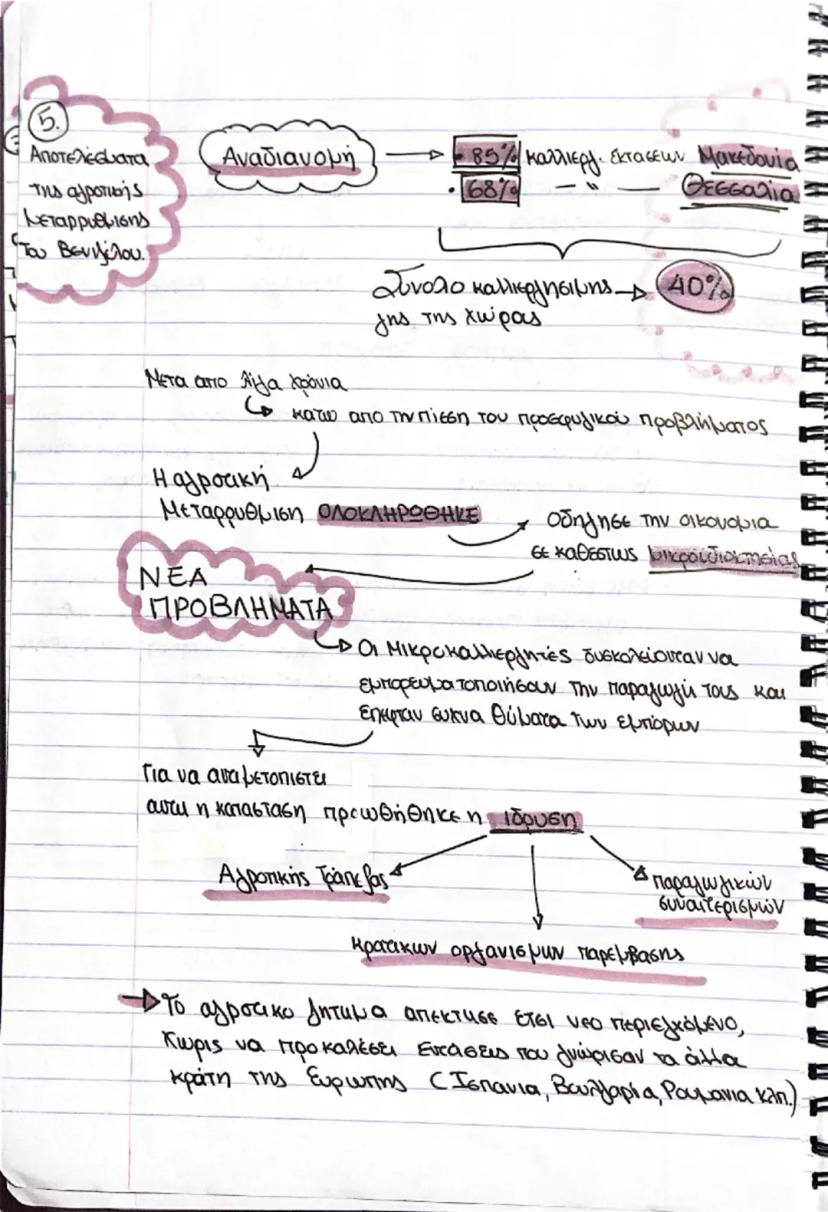 5.
Αποτελέσματα
της αγροτικής
Μεταρρυθμισης
Του Βενιζέλου.
Αναδιανομή
• 85% καλλιεργ. εκτασεων Μακεδονία
• 68% — " — Θεσσαλία
Σύνολο καλλιεργησιμης 40%
γης της χώρας
Μετα απο λίγα χρόνια
κατω απο την πιεση του προσφυγικού προβλήματος
Η αγροτική
Μεταρρυθμιση ΟΛΟΚΛΗΡΩΘΗΚΕ
Οδήγησε την οικονομια
σε καθεστως μικροϊδιοκτησίας
ΝΕΑ
ΠΡΟΒΛΗΜΑΤΑ
Οι Μικροκαλλιεργητές δυσκολεύονταν να
εμπορευματοποιήσουν την παραγωγή τους και
έπεφταν συχνα θύματα των εμπόρων
Για να αντιμετοπιστει
αυτη η κατασταση προωθήθηκε η ιδρυση
Αγροτικής Τράπεζας
παραγωγικών
συναιτερισμών
κρατικων οργανισμων παρέμβασης
Το αγροτικο ζητημα απεκτησε ετσι νεο περιεχόμενο,
Χωρις να προκαλέσει εντάσεις που γνώρισαν τα άλλα
κράτη της Ευρωπης (Ισπανια, Βουλγαρία, Ρουμανια κλπ.)